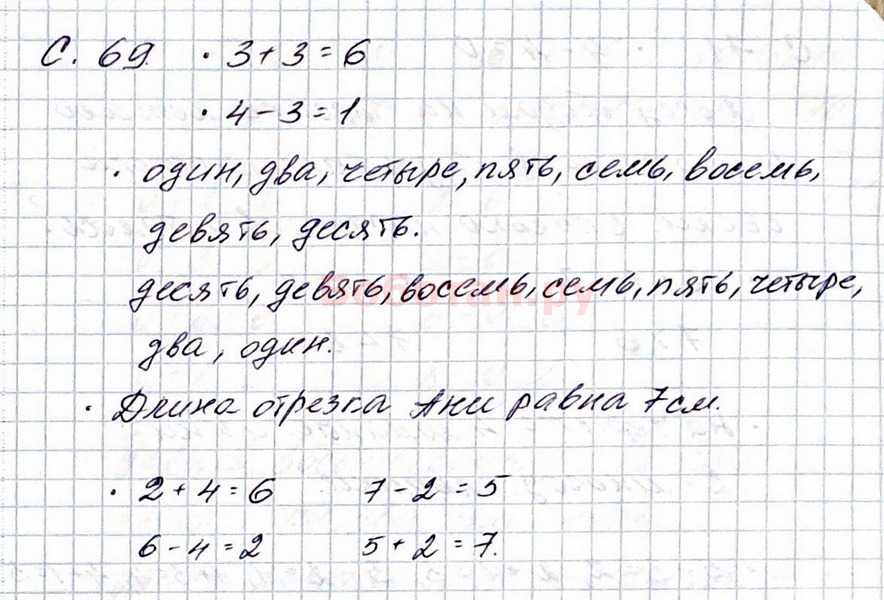 С. 69. • 3 + 3 = 6
• 4 - 3 = 1
• один, два, четыре, пять, семь, восемь,
девять, десять.
десять, девять, восемь, семь, пять, четыре,
два, один.
• Длина отрезка Ани равна 7 см.
• 2 + 4 = 6 7 - 2 = 5
6 - 4 = 2 5 + 2 = 7.